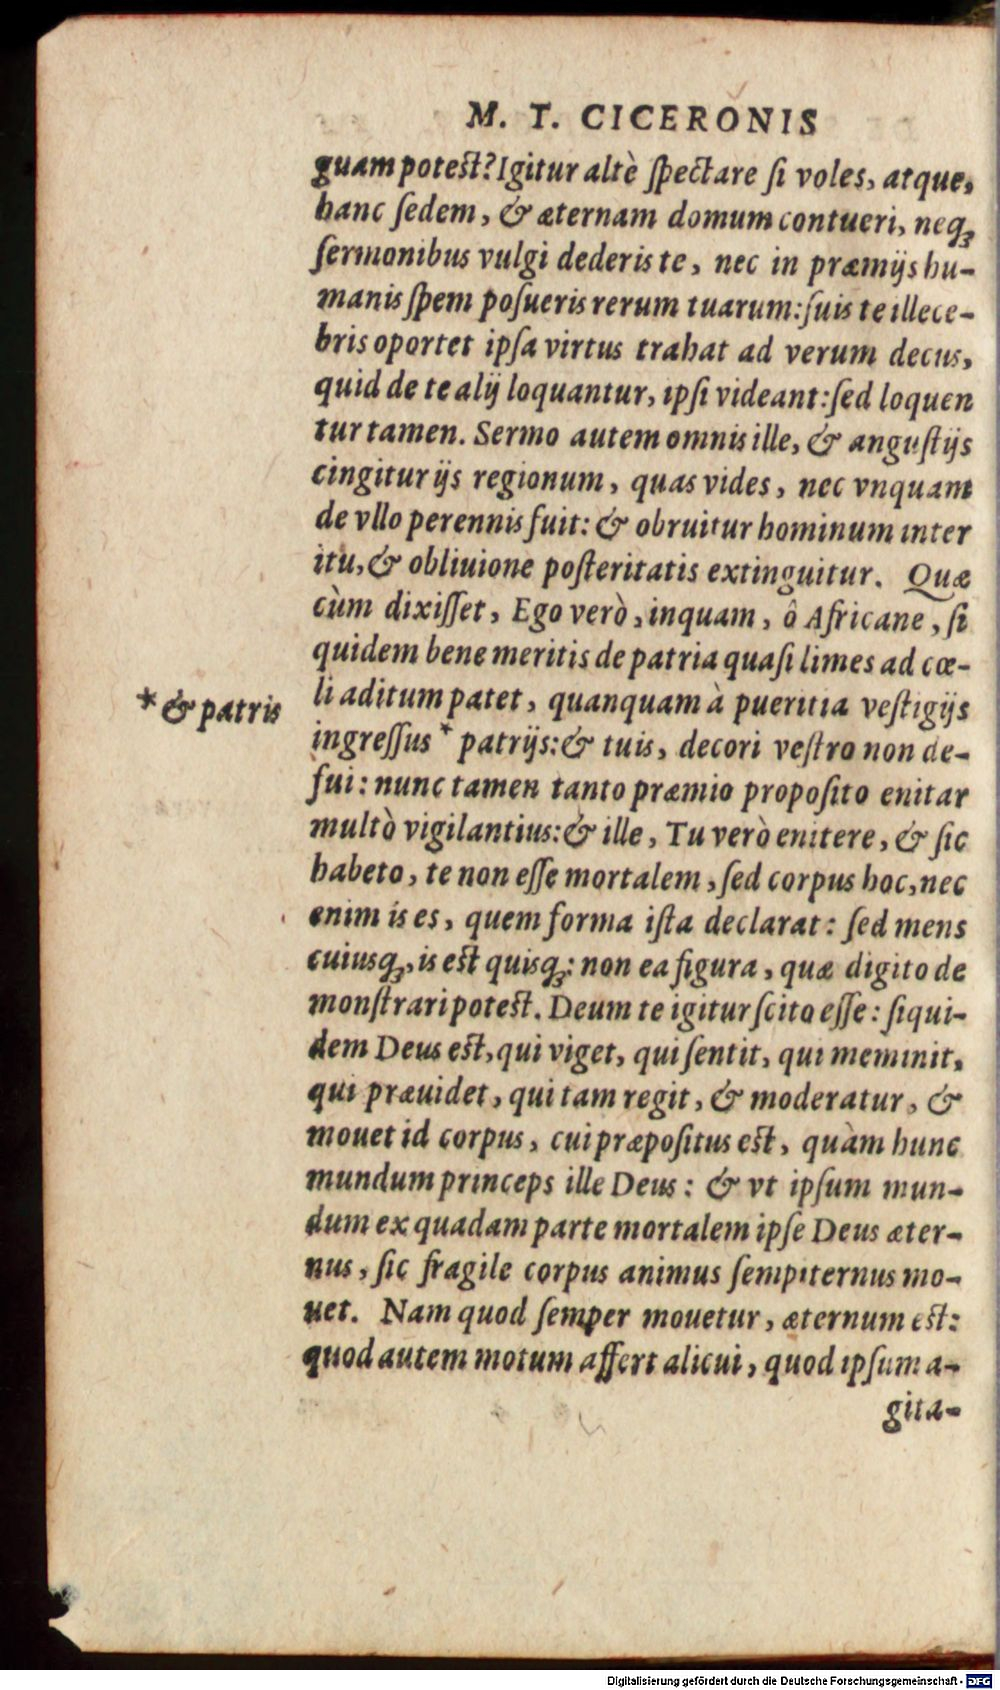 M. T. CICERONIS
guam potest? Igitur altè spectare si voles, atque,
hanc sedem, & æternam domum contueri, neq;
sermonibus vulgi dederis te, nec in præmijs hu-
manis spem posueris rerum tuarum: suis te illece-
bris oportet ipsa virtus trahat ad verum decus,
quid de te alij loquantur, ipsi videant: sed loquen
tur tamen. Sermo autem omnis ille, & angustijs
cingitur ijs regionum, quas vides, nec vnquam
de vllo perennis fuit: & obruitur hominum inter
itu, & obliuione posteritatis extinguitur. Quæ
cùm dixisset, Ego verò, inquam, ô Africane, si
quidem bene meritis de patria quasi limes ad cœ-
li aditum patet, quanquam à pueritia vestigijs
* & patris
ingressus * patrijs: & tuis, decori vestro non de-
fui: nunc tamen tanto præmio proposito enitar
multò vigilantius: & ille, Tu verò enitere, & sic
habeto, te non esse mortalem, sed corpus hoc, nec
enim is es, quem forma ista declarat: sed mens
cuiusq;, is est quisq;: non ea figura, quæ digito de
monstrari potest. Deum te igitur scito esse: siqui-
dem Deus est, qui viget, qui sentit, qui meminit,
qui præuidet, qui tam regit, & moderatur, &
mouet id corpus, cui præpositus est, quàm hunc
mundum princeps ille Deus: & vt ipsum mun-
dum ex quadam parte mortalem ipse Deus æter-
nus, sic fragile corpus animus sempiternus mo-
uet. Nam quod semper mouetur, æternum est:
quod autem motum affert alicui, quod ipsum a-
gita-
Digitalisierung gefördert durch die Deutsche Forschungsgemeinschaft - DFG